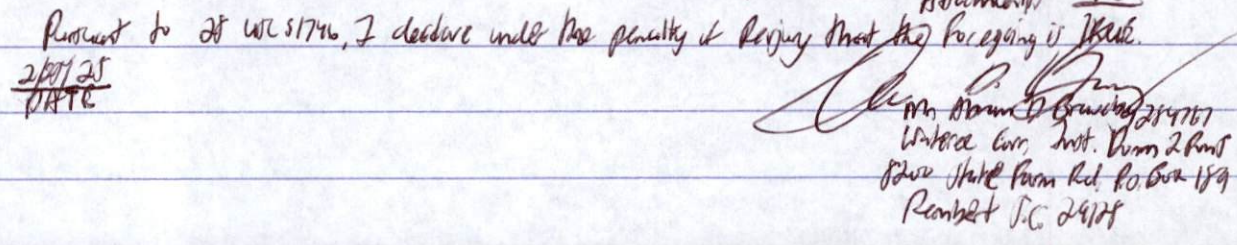 Pursuant to 28 USC §1746, I declare under the penalty of Perjury that the foregoing is TRUE.
DATE
Wateree Corr. Inst. Dorm 2
8200 State Farm Rd. P.O. Box 189
Rembert S.C. 29128